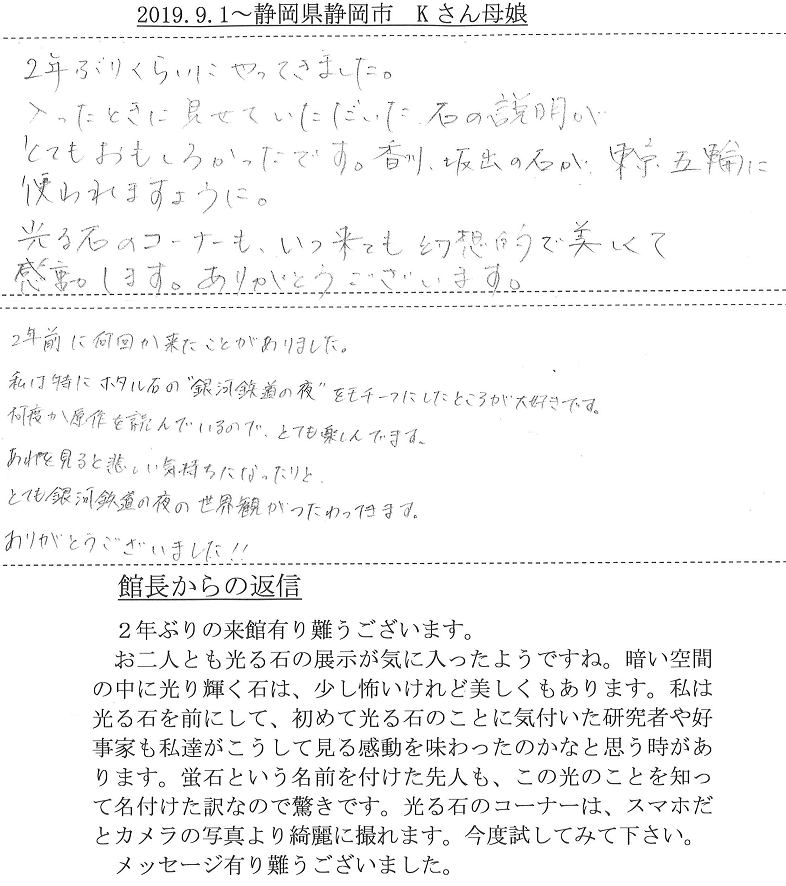 2019.9.1～静岡県静岡市　Kさん母娘
2年ぶりくらいにやってきました。
入ったときに見せていただいた 石の説明が
とてもおもしろかったです。香川、坂出の石が、東京五輪に
使われますように。
光る石のコーナーも、いつ来ても幻想的で美しくて
感動します。ありがとうございます。
2年前に何回か来たことがありました。
私は特にホタル石の"銀河鉄道の夜"をモチーフにしたところが大好きです。
何度か原作を読んでいるので、とても楽しんでます。
あれを見ると悲しい気持ちになったりと、
とても銀河鉄道の夜の世界観がつたわってきます。
ありがとうございました!!
館長からの返信
２年ぶりの来館有り難うございます。
お二人とも光る石の展示が気に入ったようですね。暗い空間
の中に光り輝く石は、少し怖いけれど美しくもあります。私は
光る石を前にして、初めて光る石のことに気付いた研究者や好
事家も私達がこうして見る感動を味わったのかなと思う時があ
ります。蛍石という名前を付けた先人も、この光のことを知っ
て名付けた訳なので驚きです。光る石のコーナーは、スマホだ
とカメラの写真より綺麗に撮れます。今度試してみて下さい。
メッセージ有り難うございました。